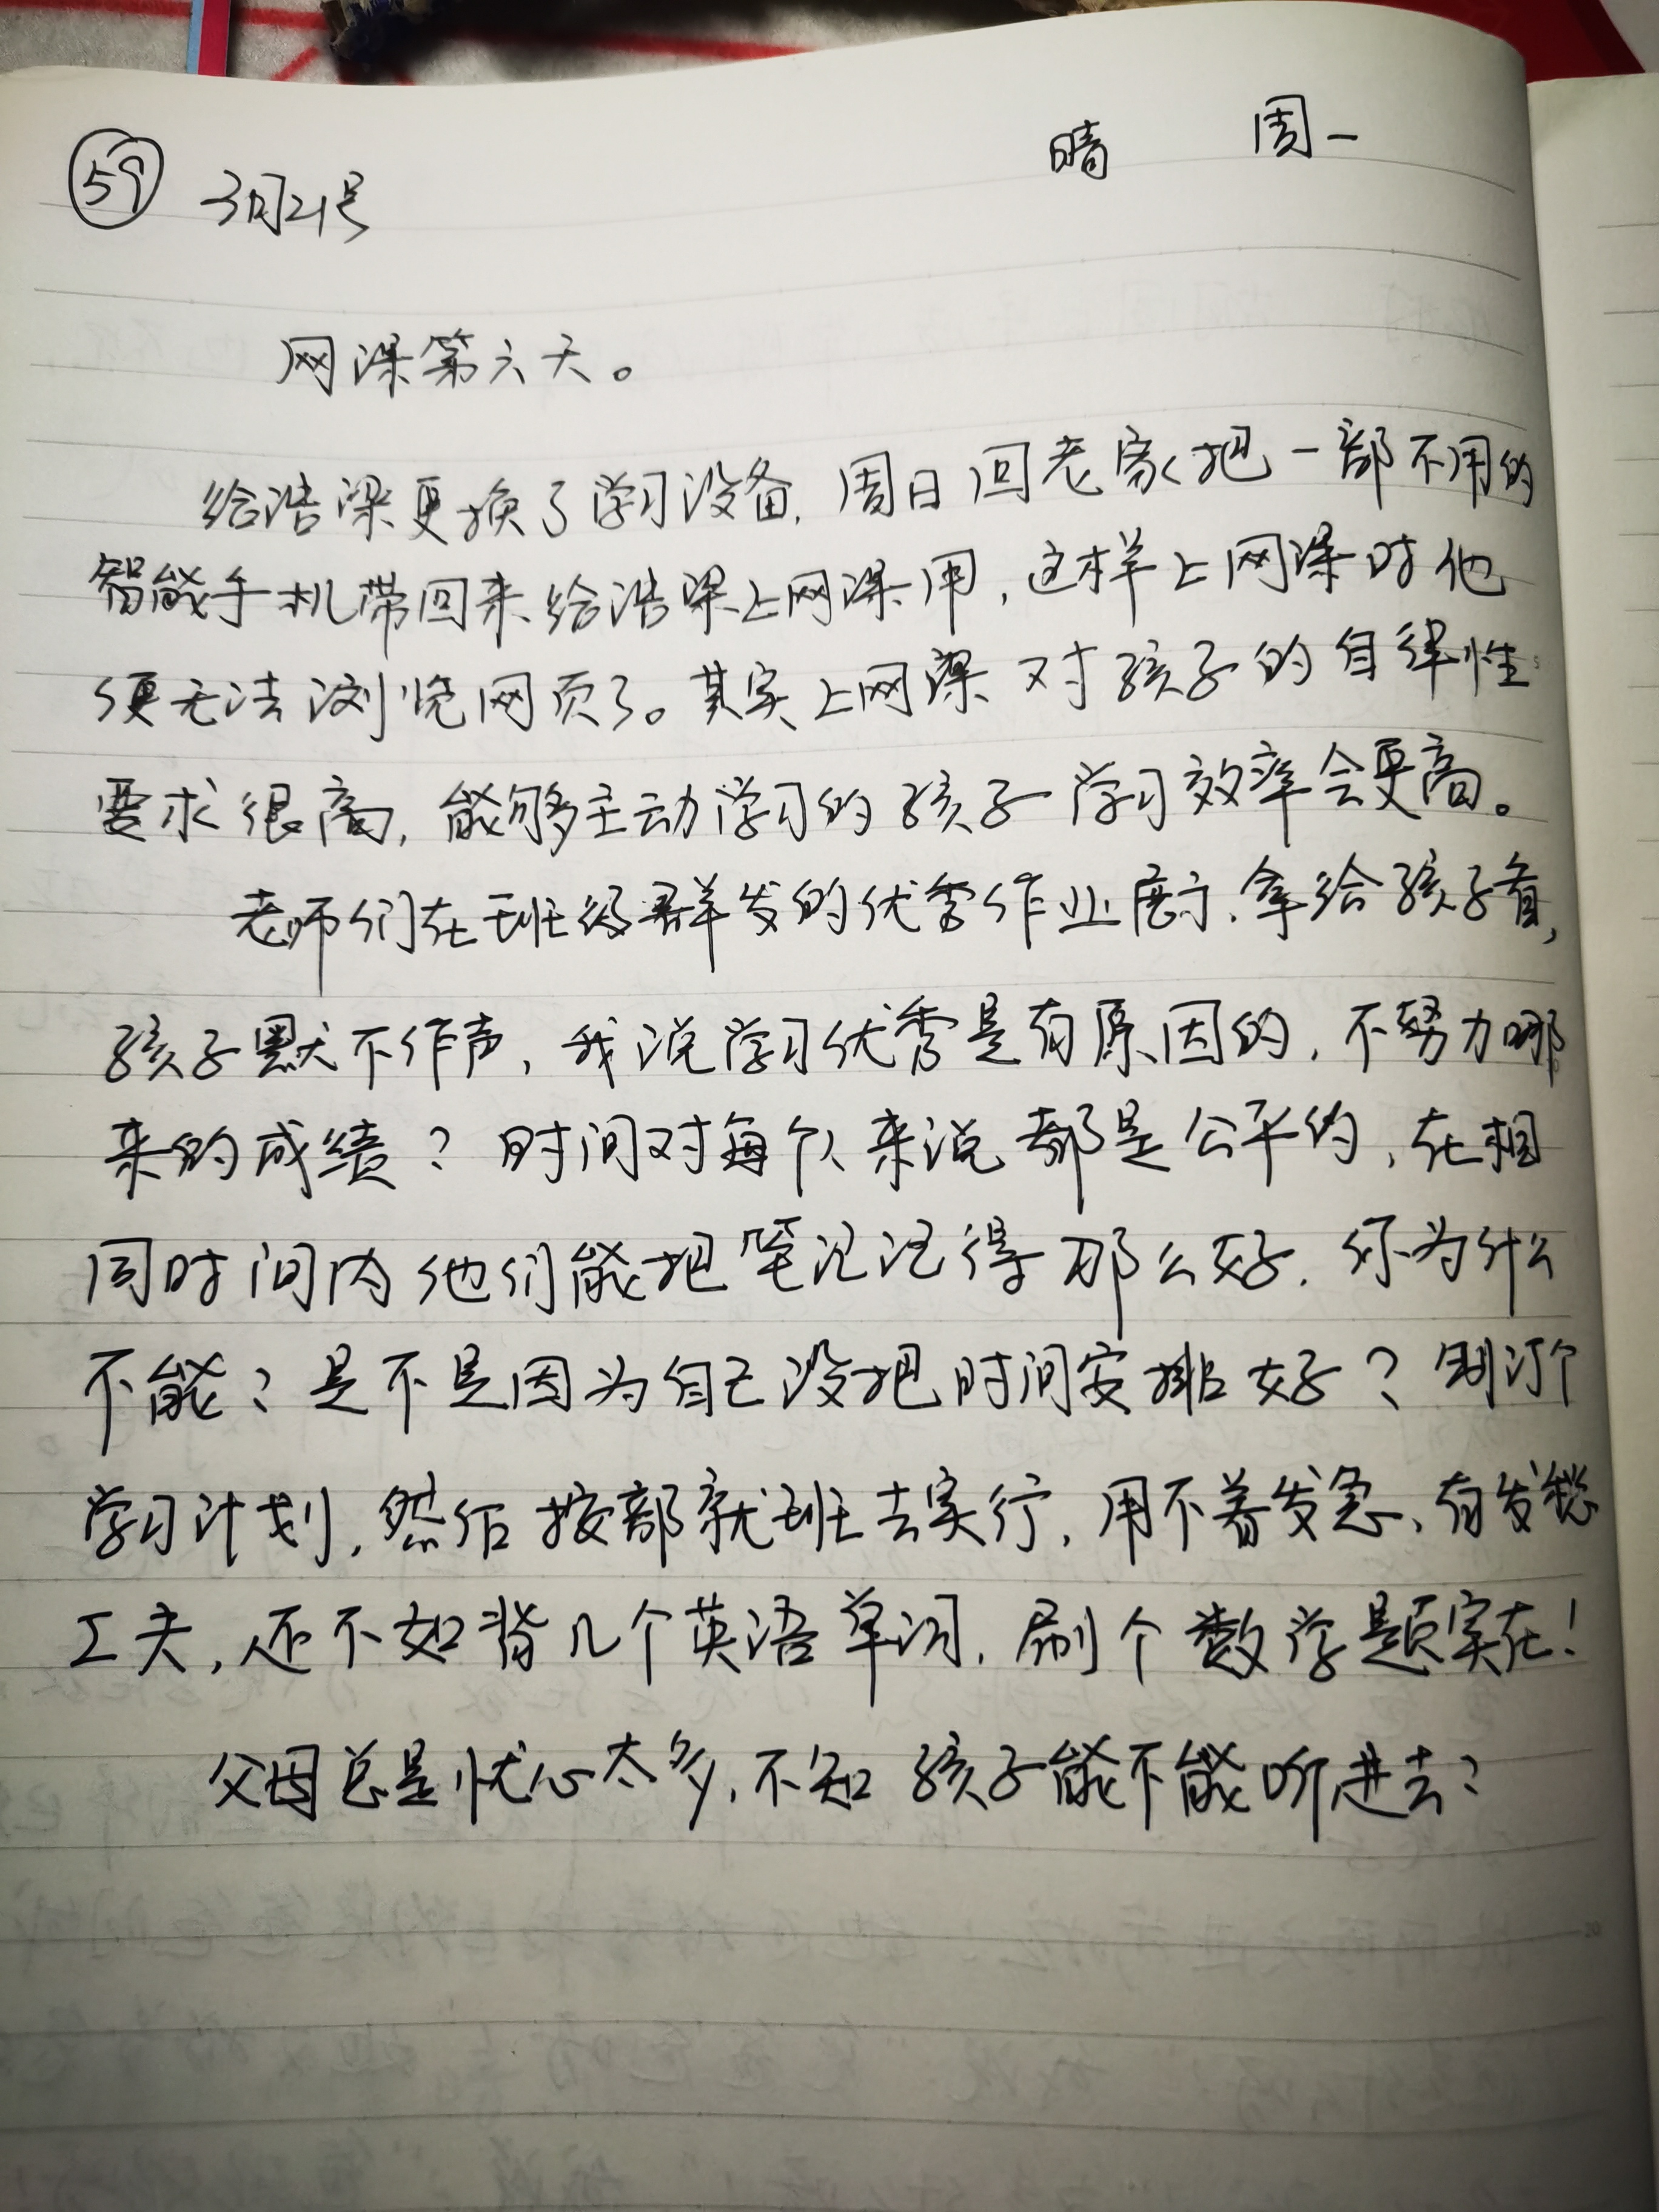 59 3月21号 晴 周一
网课第六天。
给浩梁更换了学习设备,周日回老家把一部不用的
智能手机带回来给浩梁上网课用,这样上网课时他
便无法浏览网页了。其实上网课对孩子的自律性
要求很高,能够主动学习的孩子学习效率会更高。
老师们在班级群发的优秀作业展示,拿给孩子看,
孩子默不作声,我说学习优秀是有原因的,不努力哪
来的成绩?时间对每个人来说都是公平的,在相
同时间内他们能把笔记记得那么好,你为什么
不能?是不是因为自己没把时间安排好?制订个
学习计划,然后按部就班去实行,用不着发急、有发愁
工夫,还不如背几个英语单词,刷个数学题实在!
父母总是忧心太多,不知孩子能不能听进去?